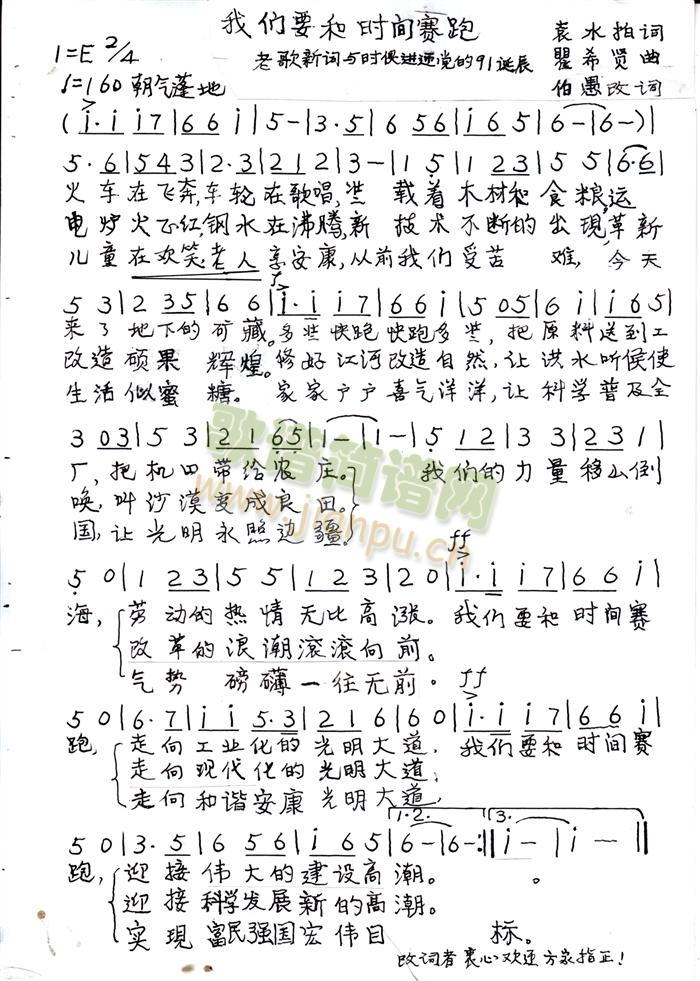 我们要和时间赛跑
袁水拍词
1=E 2/4
老歌新词与时俱进迎党的91诞辰
瞿希贤曲
♩=160 朝气蓬勃地
伯愚改词
(i·i i7|66 i|5-|3·5|6 56|i 65|6-|6-)|
5·6|543|2·3|212|3-|1 5|1 23|5 5|6·6|
火车在飞奔,车轮在歌唱,装 载着木材和食粮,运
电炉火正红,钢水在沸腾,新 技术不断的出现,革新
儿童在欢笑,老人享安康,从前我们受苦 难,今天
f
5 3|2 35|6 6|i·i i7|66 i|5 05|6 i|i 65|
来了地下的矿藏。多装快跑快跑多装,把原料送到工
改造硕果 辉煌。修好江河改造自然,让洪水听候使
生活似蜜 糖。 家家户户喜气洋洋,让科学普及全
3 03|5 3|21 65|1-|1-|5 12|3 3|2 31|
厂,把机四带给农庄。 我们的力量移山倒
唤,叫沙漠变成良田。
国,让光明永照边疆。
歌谱简谱网
www.jianpu.cn
ff
5 0|1 23|5 5|12 3|2 0|i·i i7|66 i|
海,劳动的热情无比高涨。我们要和时间赛
改革的浪潮滚滚向前。
气势 磅礴一往无前。
ff
5 0|6·7|i i 5·3|21 6|6 0|i·i i7|66 i|
跑,走向工业化的光明大道,我们要和时间赛
走向现代化的光明大道,
走向和谐安康光明大道,
1·2. 3.
5 0|3·5|6 56|i 65|6-|6-:‖i-|i-‖
跑,迎接伟大的建设高潮。 。
迎接科学发展新的高潮。
实现富民强国宏伟目 标。
改词者衷心欢迎方家指正!